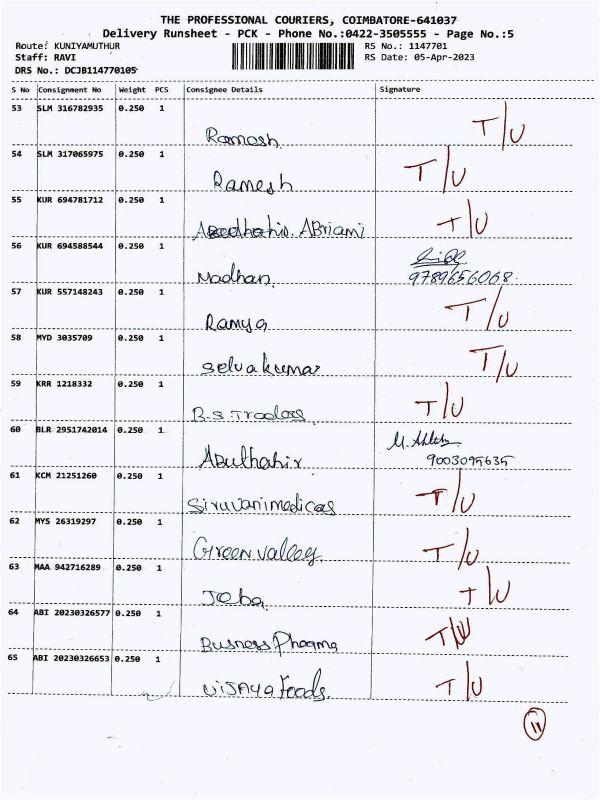 THE PROFESSIONAL COURIERS, COIMBATORE-641037
Delivery Runsheet - PCK - Phone No.:0422-3505555 - Page No.:5
Route: KUNIYAMUTHUR RS No.: 1147701
Staff: RAVI RS Date: 05-Apr-2023
DRS No.: DCJB114770105
S No Consignment No Weight PCS Consignee Details Signature
53 SLM 316782935 0.250 1
Ramosh T/U
54 SLM 317065975 0.250 1
Ramesh T/U
55 KUR 694781712 0.250 1
ABriami T/U
56 KUR 694588544 0.250 1
Madhan 9789656068
57 KUR 557148243 0.250 1
Ramya T/U
58 MYD 3035709 0.250 1
Selvakumar T/U
59 KRR 1218332 0.250 1
B.S. Traders T/U
60 BLR 2951742014 0.250 1
Abuthahir 9003095635
61 KCM 21251260 0.250 1
Siruvanimedicas T/U
62 MYS 26319297 0.250 1
Green valley T/U
63 MAA 942716289 0.250 1
Joba T/U
64 ABI 20230326577 0.250 1
Busness Pharma T/U
65 ABI 20230326653 0.250 1
Vijaya Foods. T/U
11